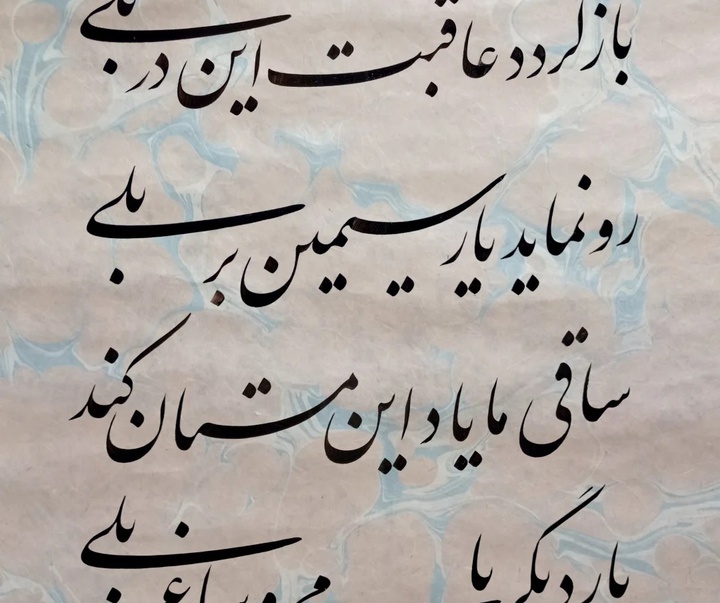 باز گردد عاقبت این در بلی
رو نماید یار سیمین بر بلی
ساقی ما یاد این مستان کند
بار دیگر با می و ساغر بلی